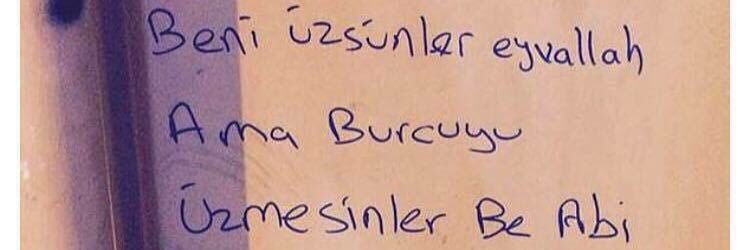 Beni üzsünler eyvallah
Ama Burcuyu
Üzmesinler Be Abi